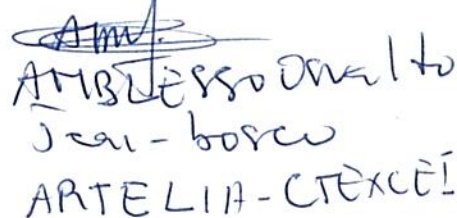 AMBLESSO Osvalto
Jean-bosco
ARTELIA-CTEXCEI